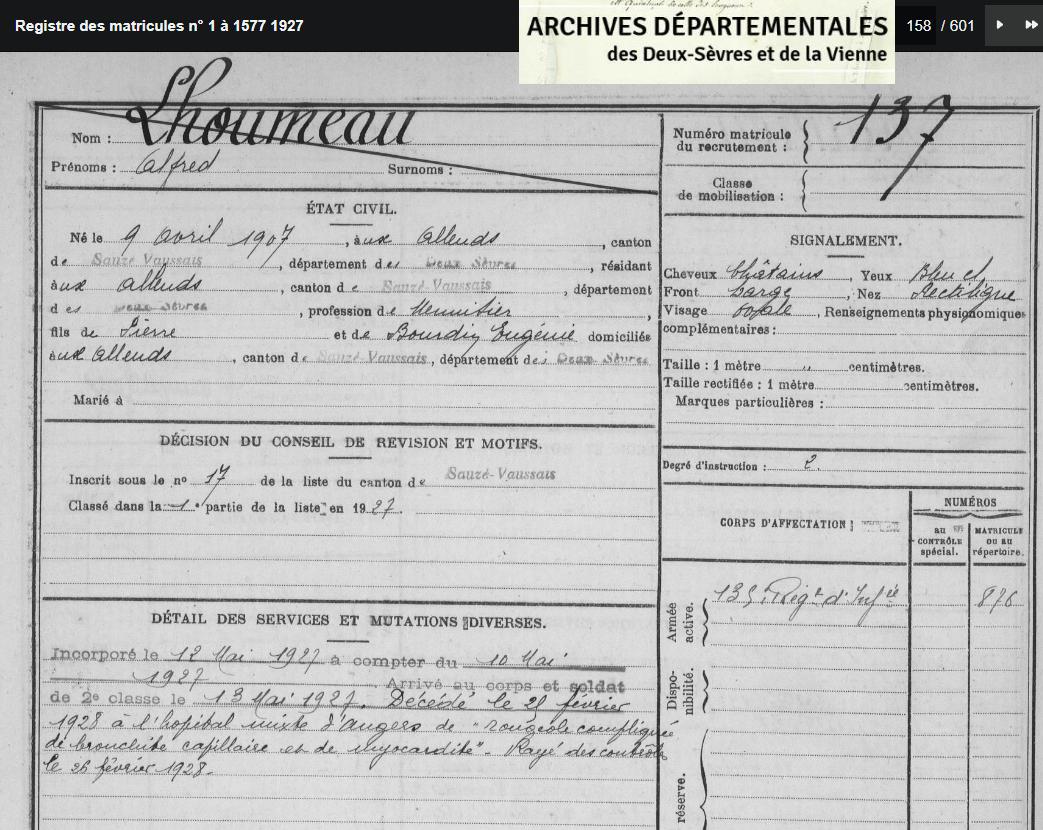 Registre des matricules n° 1 à 1577 1927
ARCHIVES DÉPARTEMENTALES
des Deux-Sèvres et de la Vienne
158 / 601
Nom : Lhoumeau
Prénoms : Alfred Surnoms :
Numéro matricule du recrutement : 137
Classe de mobilisation :
ÉTAT CIVIL.
Né le 9 avril 1907, aux Alleuds, canton
de Sauzé Vaussais, département des Deux Sèvres, résidant
aux Alleuds, canton de Sauzé-Vaussais, département
des Deux Sèvres, profession de Menuisier,
fils de Pierre et de Bourdin Eugénie domiciliés
aux Alleuds, canton de Sauzé Vaussais, département des Deux Sèvres
Marié à
SIGNALEMENT.
Cheveux Châtains, Yeux Bleu cl
Front Large, Nez Rectiligne
Visage Ovale, Renseignements physionomiques
complémentaires :
Taille : 1 mètre " centimètres.
Taille rectifiée : 1 mètre centimètres.
Marques particulières :
Degré d'instruction : 2.
DÉCISION DU CONSEIL DE REVISION ET MOTIFS.
Inscrit sous le n° 17 de la liste du canton de Sauzé-Vaussais
Classé dans la 1e partie de la liste en 1927.
CORPS D'AFFECTATION
NUMÉROS
AU CONTRÔLE spécial.
MATRICULE OU AU répertoire.
Armée active.
135 Régt d'Infie 876
Disponibilité.
réserve.
DÉTAIL DES SERVICES ET MUTATIONS DIVERSES.
Incorporé le 12 Mai 1927 à compter du 10 Mai
1927 Arrivé au corps et soldat
de 2e classe le 13 Mai 1927. Décédé le 25 février
1928 à l'hôpital mixte d'Angers de "rougeole compliquée
de bronchite capillaire et de myocardite". Rayé des contrôles
le 26 février 1928.